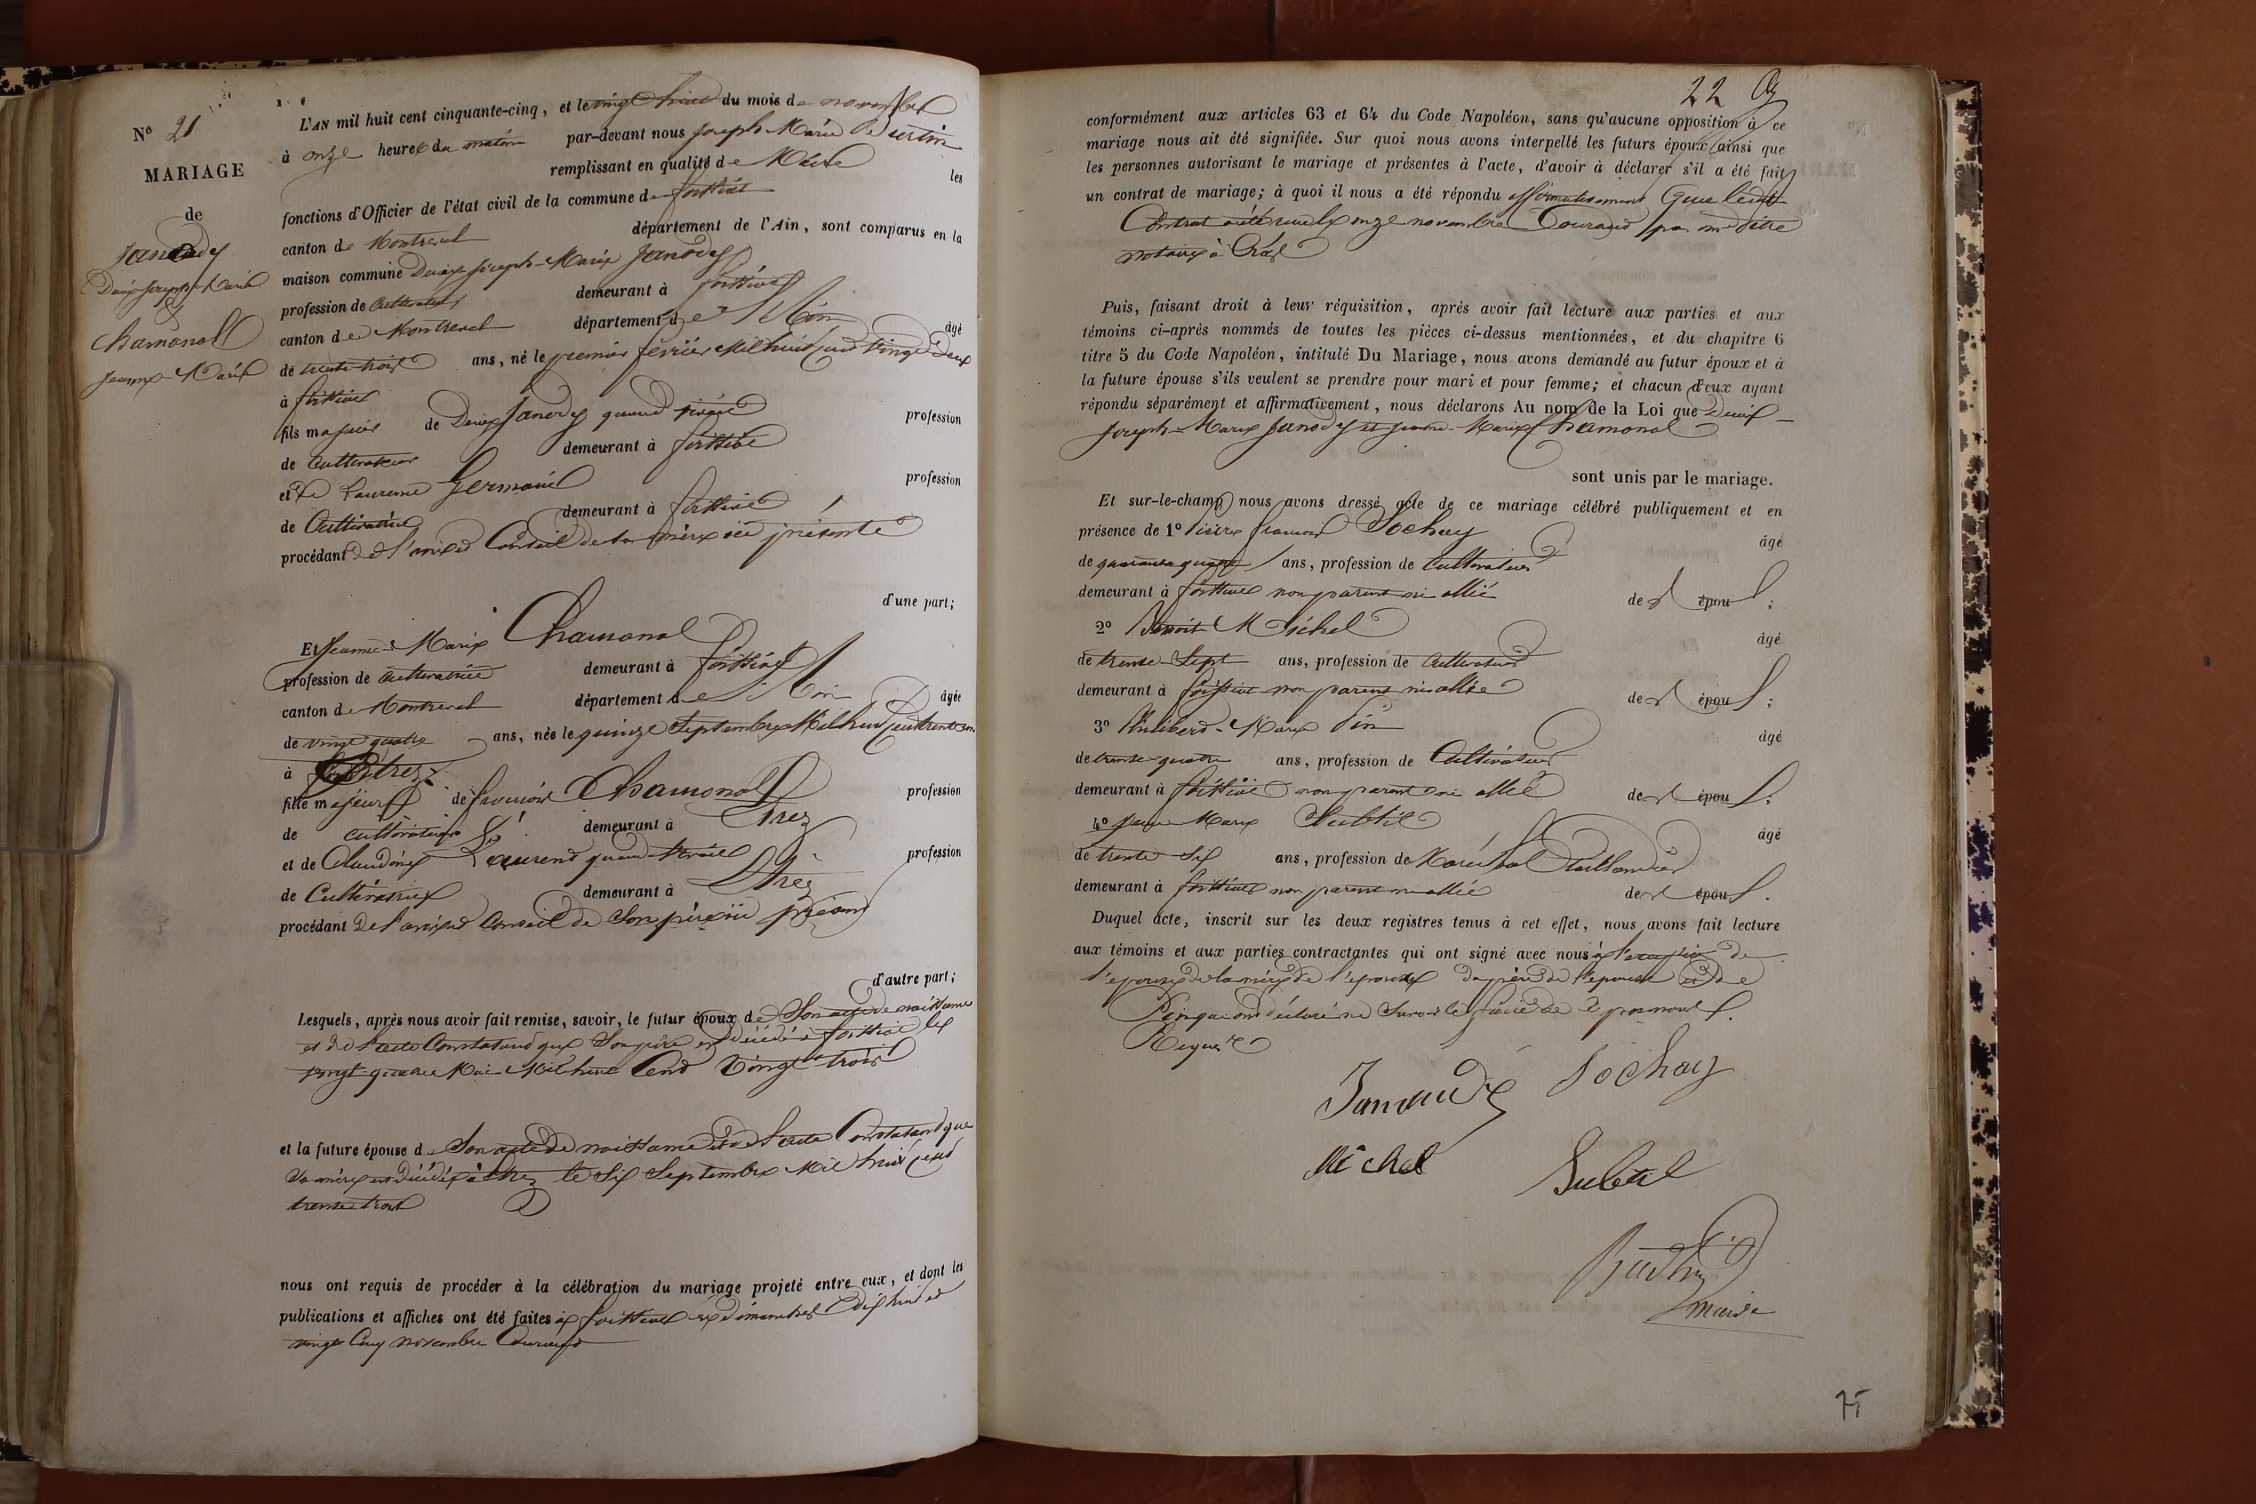 N° 21
MARIAGE
de
Janody
Denis Joseph-Marie
&
Chamonal
Jeanne-Marie
L'AN mil huit cent cinquante-cinq, et le vingt huit du mois de novembre
à onze heures du matin par-devant nous Joseph Marie
remplissant en qualité de Maire les
fonctions d'Officier de l'état civil de la commune de foissiat
canton de Montrevel département de l'Ain, sont comparus en la
maison commune Denis Joseph-Marie Janody
profession de Cultivateur demeurant à foissiat
canton de Montrevel département de l'Ain âgé
de trente trois ans, né le premier février Mil huit cent vingt deux
à foissiat
fils majeur de Denis Janody quand vivait profession
de Cultivateur demeurant à foissiat
et de Laurence Germain profession
de Cultivatrice demeurant à foissiat
procédant de l'avis et Conseil de sa mère ici présente
d'une part;
Et Jeanne-Marie Chamonal
profession de Cultivatrice demeurant à foissiat
canton de Montrevel département de l'Ain âgée
de vingt quatre ans, née le quinze Septembre Mil huit Cent trente un
à Etrez
fille majeure de François Chamonal profession
de cultivateur demeurant à Etrez
et de Claudine Laurent quand vivait profession
de Cultivatrice demeurant à Etrez
procédant De l'avis et Conseil de Son père ici présent
d'autre part;
Lesquels, après nous avoir fait remise, savoir, le futur époux de Son acte de naissance
et de l'acte Constatant que Son père est décédé à foissiat le
vingt quatre Mai Mil huit Cent Vingt trois
et la future épouse de Son acte de naissance et de l'acte Constatant que
Sa mère est décédée à Etrez le Six Septembre Mil huit Cent
trente trois
nous ont requis de procéder à la célébration du mariage projeté entre eux, et dont les
publications et affiches ont été faites à foissiat les dimanches dix huit et
vingt Cinq novembre Courant
22
conformément aux articles 63 et 64 du Code Napoléon, sans qu'aucune opposition à ce
mariage nous ait été signifiée. Sur quoi nous avons interpellé les futurs époux ainsi que
les personnes autorisant le mariage et présentes à l'acte, d'avoir à déclarer s'il a été fait
un contrat de mariage; à quoi il nous a été répondu affirmativement Que ledit
Contrat a été reçu le onze novembre Courant par me
notaire à
Puis, faisant droit à leur réquisition, après avoir fait lecture aux parties et aux
témoins ci-après nommés de toutes les pièces ci-dessus mentionnées, et du chapitre 6
titre 5 du Code Napoléon, intitulé Du Mariage, nous avons demandé au futur époux et à
la future épouse s'ils veulent se prendre pour mari et pour femme; et chacun d'eux ayant
répondu séparément et affirmativement, nous déclarons Au nom de la Loi que Denis
Joseph-Marie Janody et Jeanne-Marie Chamonal
sont unis par le mariage.
Et sur-le-champ nous avons dressé acte de ce mariage célébré publiquement et en
présence de 1° Pierre françois Sochay âgé
de quarante quatre ans, profession de Cultivateur
demeurant à foissiat non parent ni allié de l épou ;
2° Benoit Michel âgé
de trente-Sept ans, profession de Cultivateur
demeurant à foissiat non parent ni allié de l épou ;
3° Philibert-Marie Pin âgé
de trente-quatre ans, profession de Cultivateur
demeurant à foissiat non parent ni allié de l épou ;
4° Jean Marie Subtil âgé
de trente Six ans, profession de Maréchal Taillandier
demeurant à foissiat non parent ni allié de l épou .
Duquel acte, inscrit sur les deux registres tenus à cet effet, nous avons fait lecture
aux témoins et aux parties contractantes qui ont signé avec nous à l'exception de
l'épouse de la mère de l'époux du père de l'épouse et de
Pin qui ont déclaré ne Savoir le faire de ce
Requis
Janaudy Sochay
Michel Subtil
maire
75